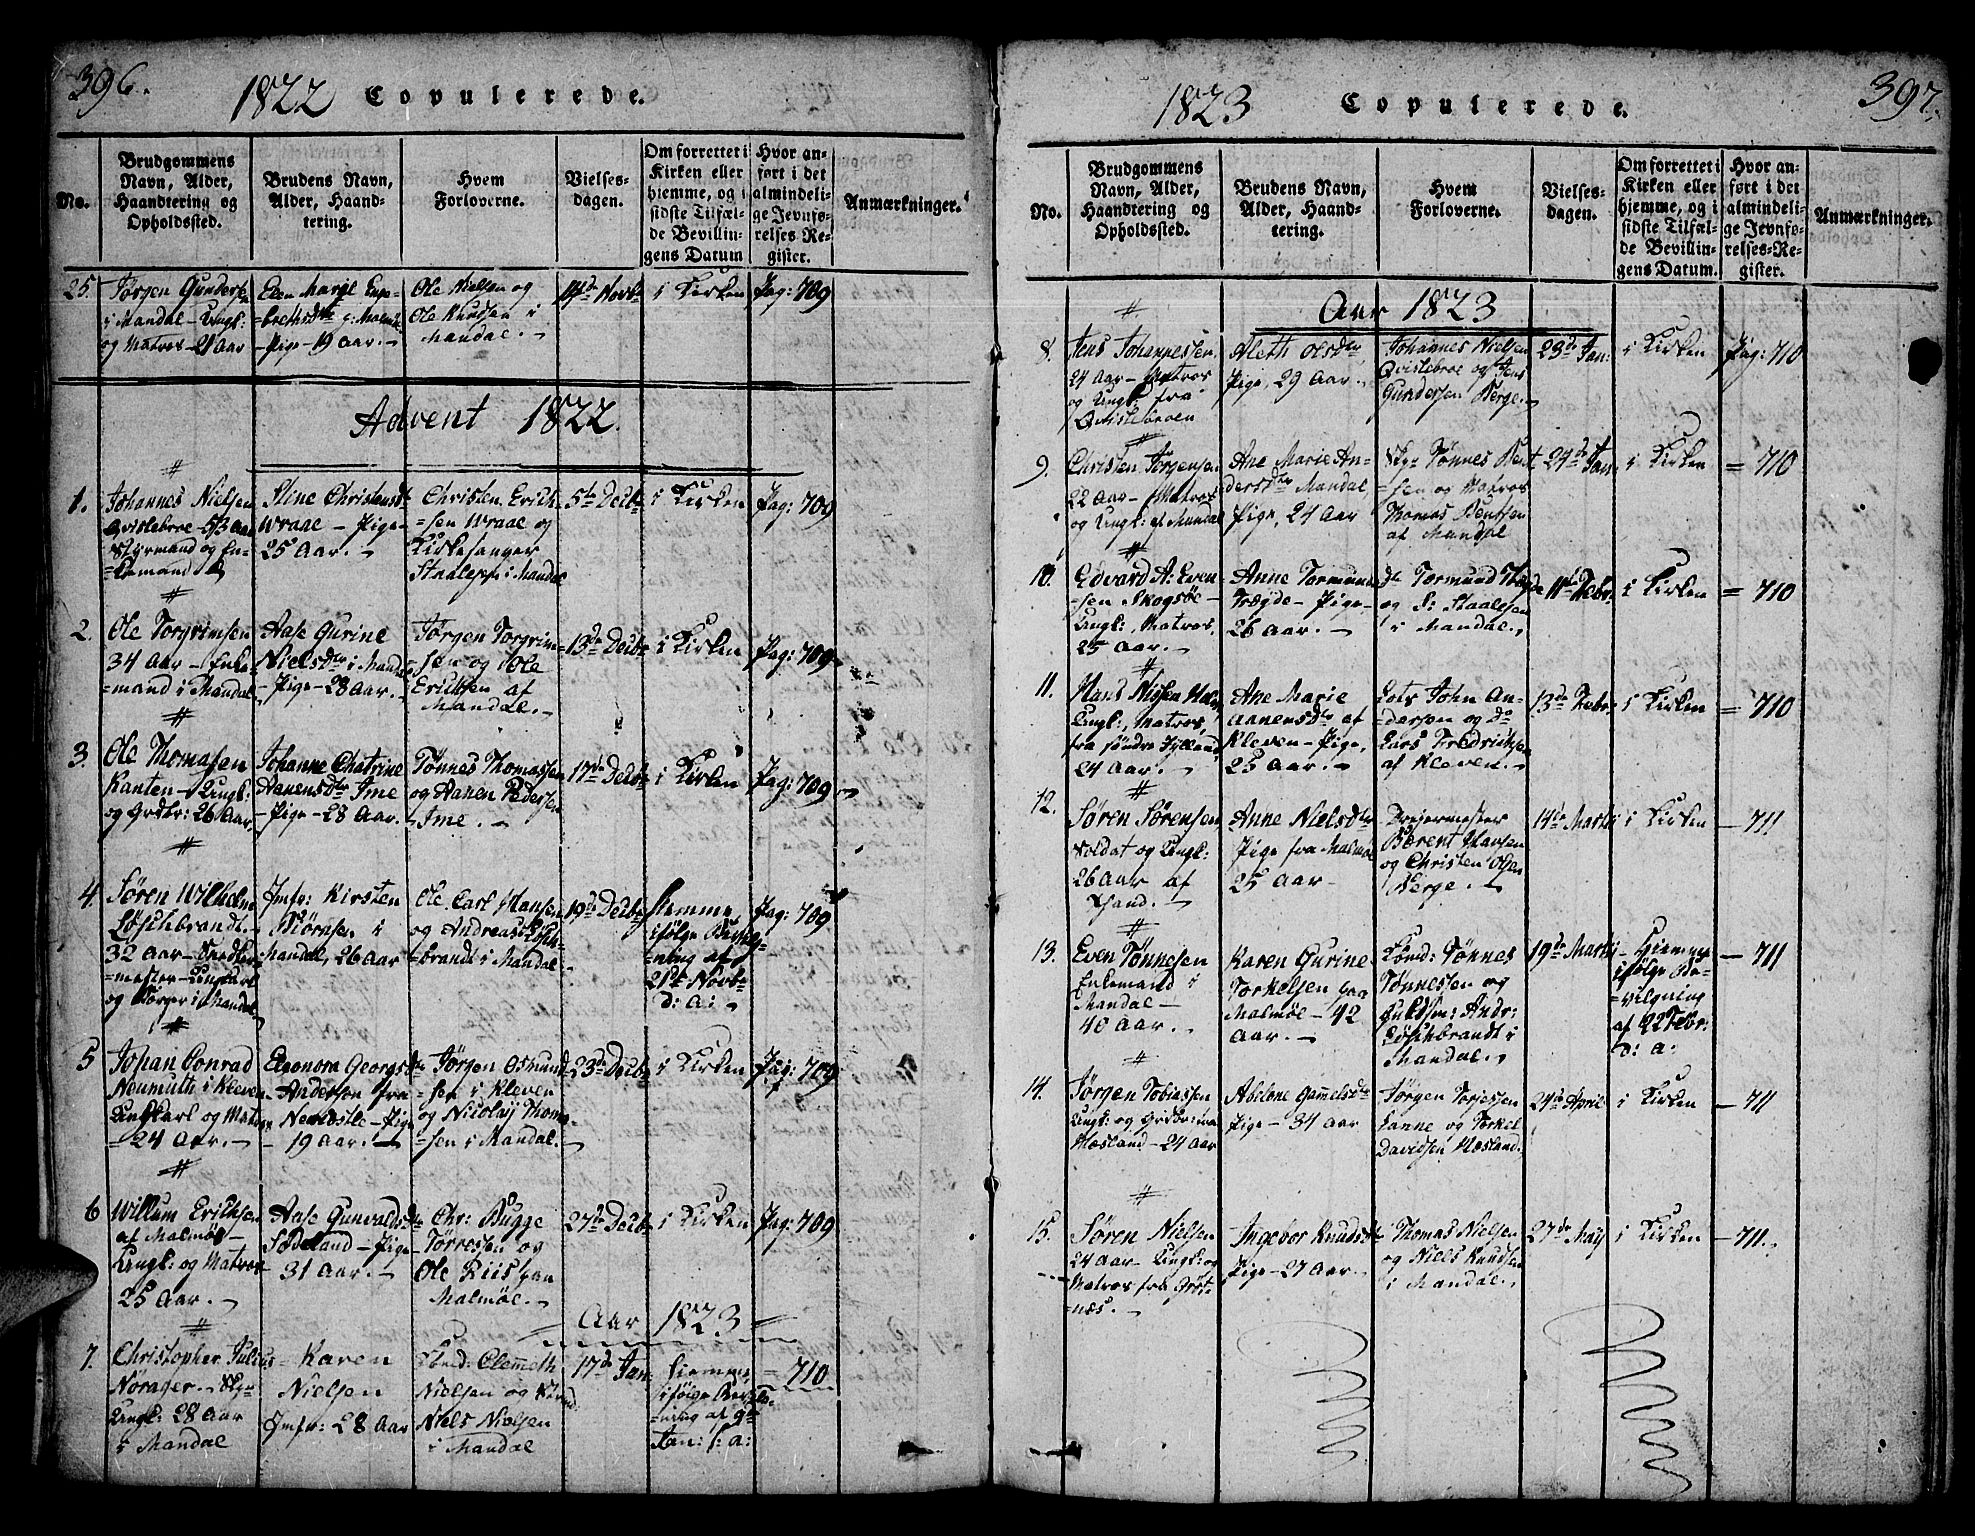 396.
1822 Copulerede.
No.
Brudgommens
Navn, Alder,
Haandtering og
Opholdssted.
Brudens Navn,
Alder, Haand-
tering.
Hvem
Forloverne.
Vielses-
dagen.
Om forrettet i
Kirken eller
hjemme, og i
sidste Tilfæl-
de Bevillin-
gens Datum
Hvor an-
ført i det
almindeli-
ge Jevnfø-
relses Re-
gister.
Anmærkninger.
25.
Jørgen Gunders
i Mandal - Ungk:
og Matros - 21 Aar
Elen Margt Enge-
brethsdtr
Pige - 19 aar.
Ole Nielsen og
Ole Knudsen i
Mandal.
14de Novbr
i Kirken
Pag: 709
Advent 1822.
1.
Johannes Nielsen
Qvislebroe - 53 Aar
Styrmand og En-
kemand
Stine Christensdtr
Wraae - Pige
25 Aar.
Christen Erich-
sen Wraae og
Kirkesanger
i Mandal
5te Decbr
i Kirken
Pag: 709
2.
Ole Torgrimsen
34 Aar - Enke-
mand i Mandal
Aase Gurine
Nielsdtr i Mandal
- Pige - 28 Aar.
Jørgen Torgrim-
sen og Ole
Erichsen af
Mandal.
13de Decbr
i Kirken
Pag: 709
3.
Ole Thomasen
Kanten - Ungk:
og Grdbr: 26 Aar.
Johanne Chatrine
Aanensdtr Ime
- Pige - 28 Aar.
Tønnes Thomassen
og Aanen Pedersen
Ime.
17de Decbr
i Kirken
Pag: 709
4.
Søren Wilhelm
Løschbrandt
32 Aar - Snedker-
mester - Ungkarl
og Borger i Mandal
Jmfr: Kirsten
Biørnsen i
Mandal, 26 Aar
Ole Carl Hansen
og Andreas Løsch-
brandt i Mandal.
19de Decbr
Hiemme,
ifølge Bevilg-
ning af
21de Novbr
d: a:
Pag: 709
5
Johan Conrad
Neumuth i Kleven
Ungkarl og Matros
- 24 Aar.
Eleonora Georgsdtr
Andersen fra
- Pige
- 19 Aar.
Jørgen Osmund-
sen i Kleven
og Nicolaij Thom-
sen i Mandal.
23de Decbr
i Kirken
Pag: 709
6
Willum Erichsen
af Malmøe
Ungk: og Matros
25 Aar.
Aase Gunvaldsdtr
- Pige
31 Aar.
Chr: Bugge
Torresen og
Ole Riis paa
Malmøe.
27de Decbr
i Kirken
Pag: 709
Aar 1823
7.
Christopher Julius
Norager. Styr
Ungk: 28 Aar
i Mandal
Karen
Nielsen
Jmfr: 28 Aar
Clemeth
Nielsen og
Niels Nielsen
i Mandal
17de Jan:
hiemme,
ifølge Bevilg-
ning af 9de
Jan: d: a:
= 710
397.
1823 Copulerede.
No.
Brudgommens
Navn, Alder,
Haandtering og
Opholdssted.
Brudens Navn,
Alder, Haand-
tering.
Hvem
Forloverne.
Vielses-
dagen.
Om forrettet i
Kirken eller
hjemme, og i
sidste Tilfæl-
de Bevillin-
gens Datum.
Hvor an-
ført i det
almindeli-
ge Jevnfø-
relses-Re-
gister.
Anmærkninger.
Aar 1823
8.
Jens Johannessen.
24 Aar - Matros
og Ungk: fra
Qvislebroen
Aleth Olsdtr
Pige, 29 Aar.
Johannes Nielsen
Qvislebroe og Jens
Gundersen Berge.
23de Jan:
i Kirken
Pag: 710
9.
Christen Jørgensen
22 Aar - Matros
og Ungk: af Mandal
Ane Marie An-
dersdtr Mandal,
Pige, 24 Aar
Styr Tønnes Bent-
sen og Matros
Thomas Bentsen
af Mandal
24de Jan:
i Kirken
= 710
10.
Edvard A: Even-
sen Skogsøe -
Ungk:, Matros,
25 Aar.
Anne Tormundsdtr
Trægde - Pige -
26 Aar.
Tormund
og S: Staalesen
i Mandal.
11te Febr.
i Kirken
= 710
11.
Hans Nissen
Ungk:, Matros
fra søndre Jylland,
24 Aar.
Ane Marie
Aanensdtr af
Kleven - Pige,
25 Aar.
Lots John An-
dersen og do
Lars Fredrichsen
af Kleven.
13de Febr.
i Kirken
= 710
12.
Søren Sørensen
Soldat og Ungk:
26 Aar af
Anne Nielsdtr
Pige fra Malmøe
25 Aar -
Dreiermester
Berent Hansen
og Christen Olsen
Berge.
14de Martii
i Kirken
- 711
13.
Even Tønnesen
Enkemand i
Mandal -
40 Aar.
Karen Gurine
Torkelsen paa
Malmøe - 42
Aar.
Tønnes
Tønnessen og
Guldsm: Andr:
Løschbrandt i
Mandal.
19de Martii
- Hiemme
ifølge Be-
vilgning
af 22 Febr:
d: a:
- 711
14.
Jørgen Tobiassen
Ungk: og Grdbr: paa
Hæsland - 24 Aar
Abelone Gamelsdtr
Pige - 34 Aar
Jørgen Torjessen
Lanne og Torkel
Davidsen Hæsland.
24de April
i Kirken
- 711
15.
Søren Nielsen
24 Aar - Ungk: og
Matros fra Grøs-
næs.
Ingebor Knudsdtr
Pige - 27 Aar.
Thomas Nielsen
og Niels Knudsen
i Mandal.
27de Maij
i Kirken
- 711.